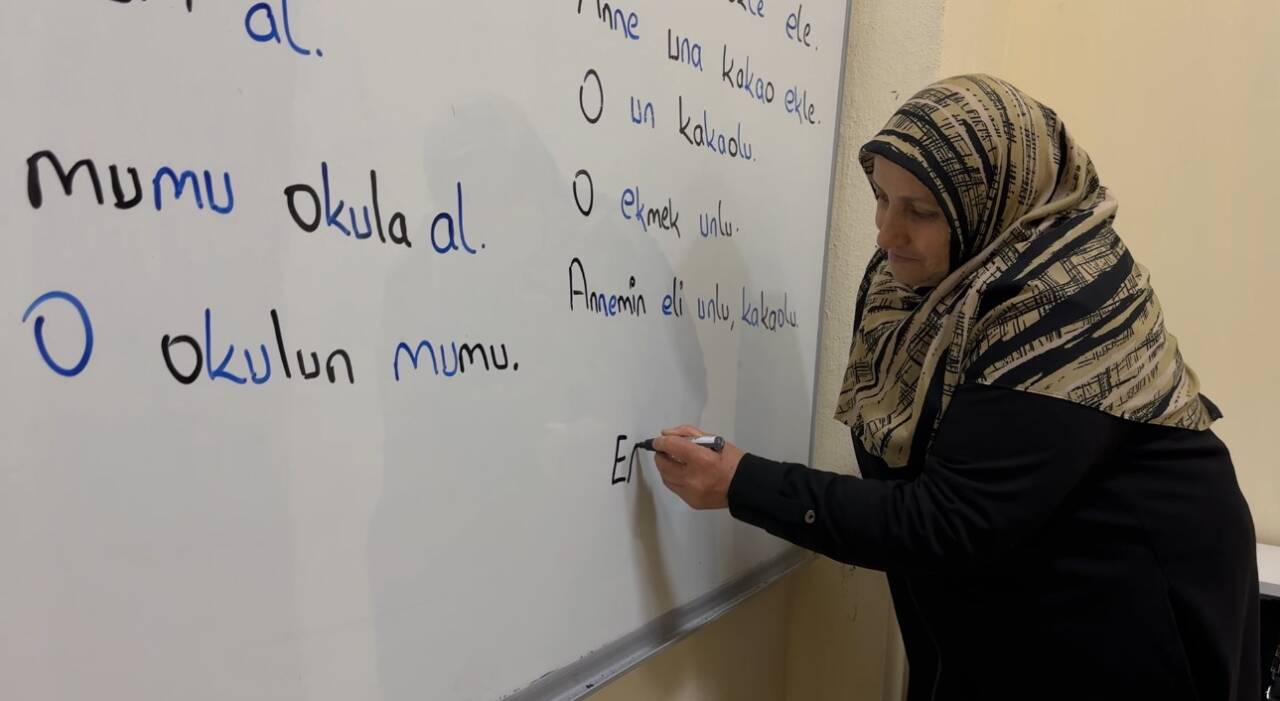 al.
mumu okula al.
O okulun mumu.
ele.
Anne una kakao ekle.
O un kakaolu.
O ekmek unlu.
Annemin eli unlu, kakaolu.